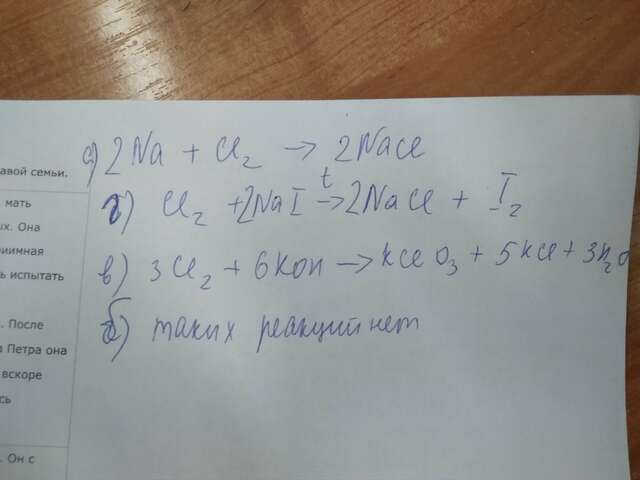 авой семьи.
мать
ых. Она
риимная
ь испытать
. После
а Петра она
вскоре
сь
. Он с
а) 2Na + Cl₂ → 2NaCl
г) Cl₂ + 2NaI t→ 2NaCl + I₂
в) 3Cl₂ + 6KOH → KClO₃ + 5KCl + 3H₂O
б) таких реакций нет